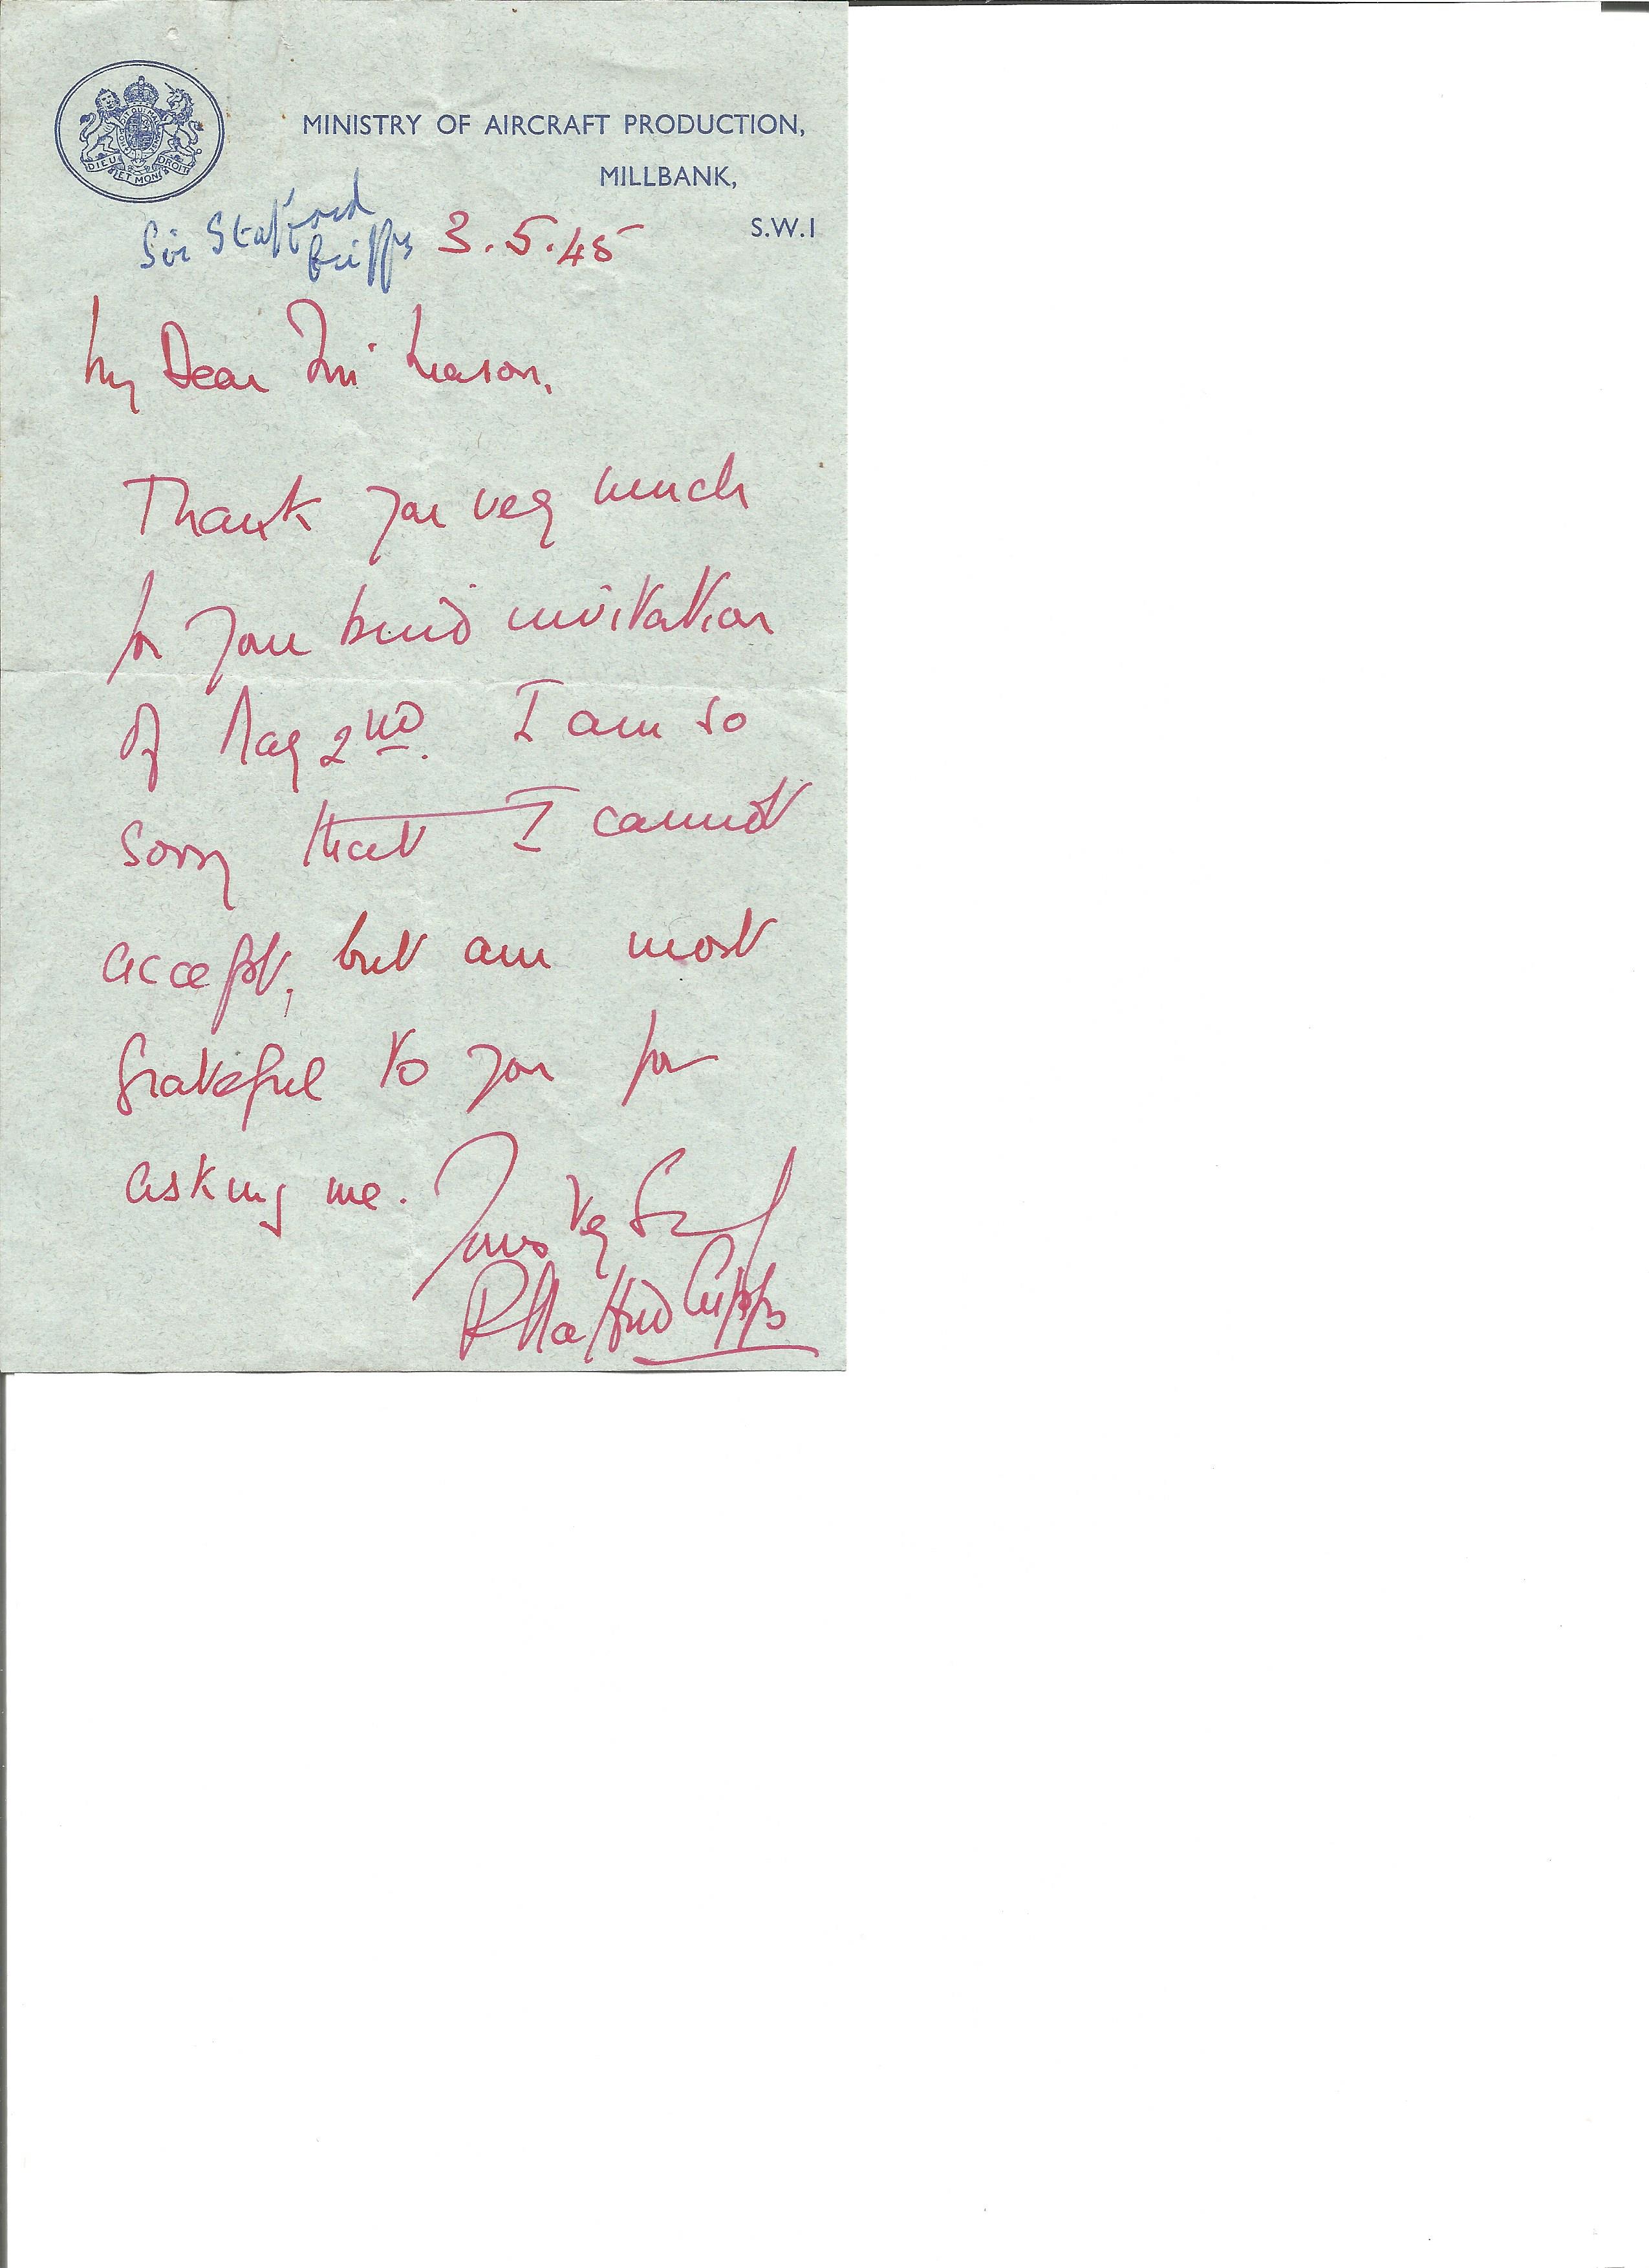 DIEU ET MON DROIT
MINISTRY OF AIRCRAFT PRODUCTION,
MILLBANK,
S.W.1
Sir Stafford
Cripps
3.5.45
My Dear
Thank you very much
for your kind invitation
of May 2nd. I am so
sorry that I cannot
accept, but am most
grateful to you for
asking me.
Yours Vy
R Stafford Cripps